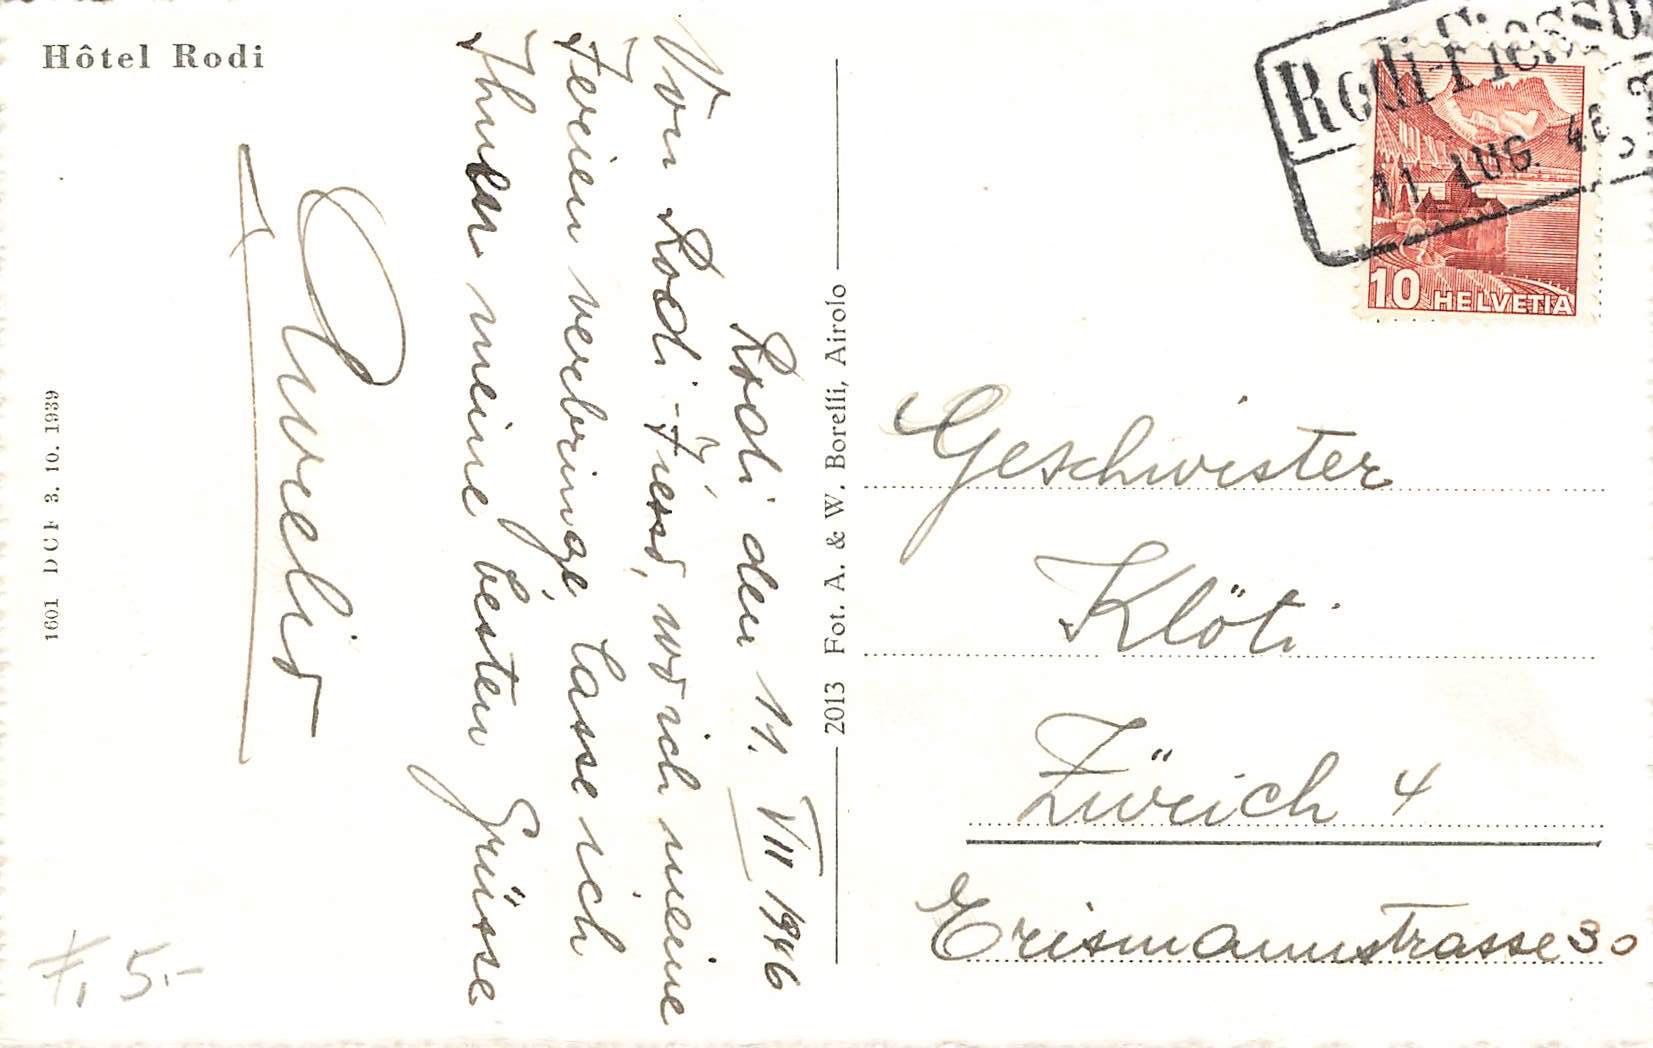 Hôtel Rodi
Rodi-Fiesso
11. AUG. 46
10 HELVETIA
Rodi den 11. VIII 1946
Von Rodi-Fiesso, wo ich meine
Ferien verbringe, lasse ich
Ihnen meine besten Grüsse
Geschwister
Klöti
Zürich 4
Erismannstrasse 30
2013 Fot. A. & W. Borelli, Airolo
1601 DCF 3. 10. 1939
Fr. 5.-